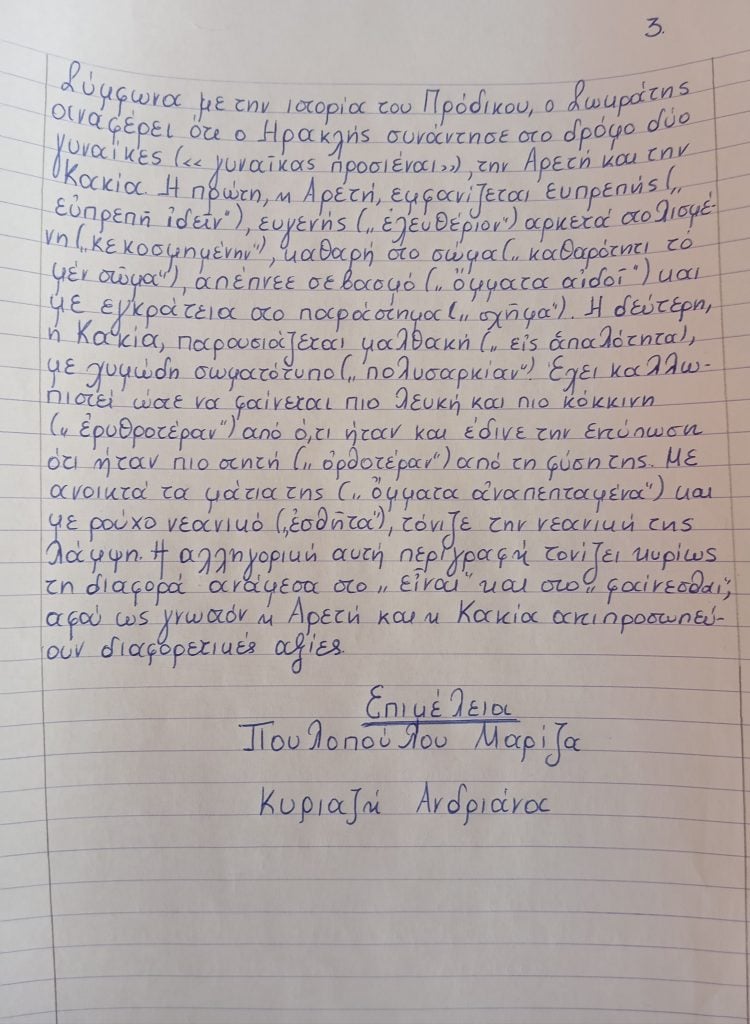 3.
Σύμφωνα με την ιστορία του Πρόδικου, ο Σωκράτης
αναφέρει ότι ο Ηρακλής συνάντησε στο δρόμο δύο
γυναίκες (<< γυναῖκας προσιέναι>>), την Αρετή και την
Κακία. Η πρώτη, η Αρετή, εμφανίζεται ευπρεπής („
εὐπρεπῆ ἰδεῖν"), ευγενής („ ἐλευθέριον") αρκετά στολισμέ-
νη („κεκοσμημένην"), καθαρή στο σώμα („ καθαρότητι τὸ
μέν σῶμα"), απέπνεε σεβασμό („ ὄμματα αἰδοῖ") και
με εγκράτεια στο παράστημα („ σχῆμα"). Η δεύτερη,
η Κακία, παρουσιάζεται μαλθακή („ εἰς ἁπαλότητα),
με χυμώδη σωματότυπο („ πολυσαρκίαν"). Έχει καλλω-
πιστεί ώστε να φαίνεται πιο λευκή και πιο κόκκινη
(„ ἐρυθροτέραν") από ό,τι ήταν και έδινε την εντύπωση
ότι ήταν πιο στητή („ ὀρθοτέραν") από τη φύση της. Με
ανοικτά τα μάτια της („ ὄμματα ἀναπεπταμένα") και
με ρούχο νεανικό („ἐσθῆτα"), τόνιζε την νεανική της
λάμψη. Η αλληγορική αυτή περιγραφή τονίζει κυρίως
τη διαφορά ανάμεσα στο „ εἶναι" και στο „ φαίνεσθαι",
αφού ως γνωστόν η Αρετή και η Κακία αντιπροσωπεύ-
ουν διαφορετικές αξίες.
Επιμέλεια
Πουλοπούλου Μαρίζα
Κυριαζή Ανδριάνα